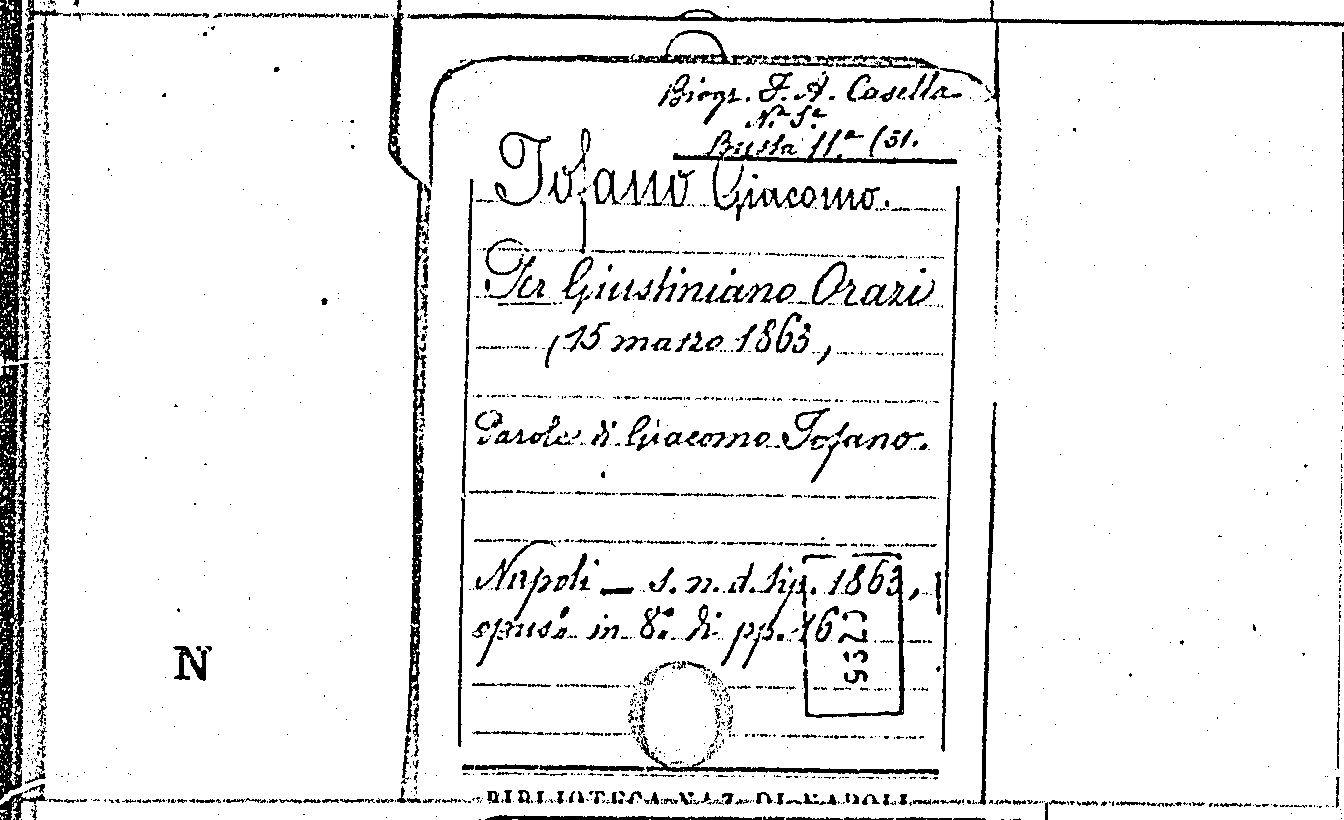 Biogr. F. A. Casella.
N.° 5.°
Busta 11.ª (51.
Tofano Giacomo.
Per Giustiniano Orazi
(15 marzo 1863,
Parole di Giacomo Tofano.
Napoli — s. n. d. tip. 1863,
opusc. in 8.° di pp. 16
N
BIBLIOTECA NAZ. DI NAPOLI